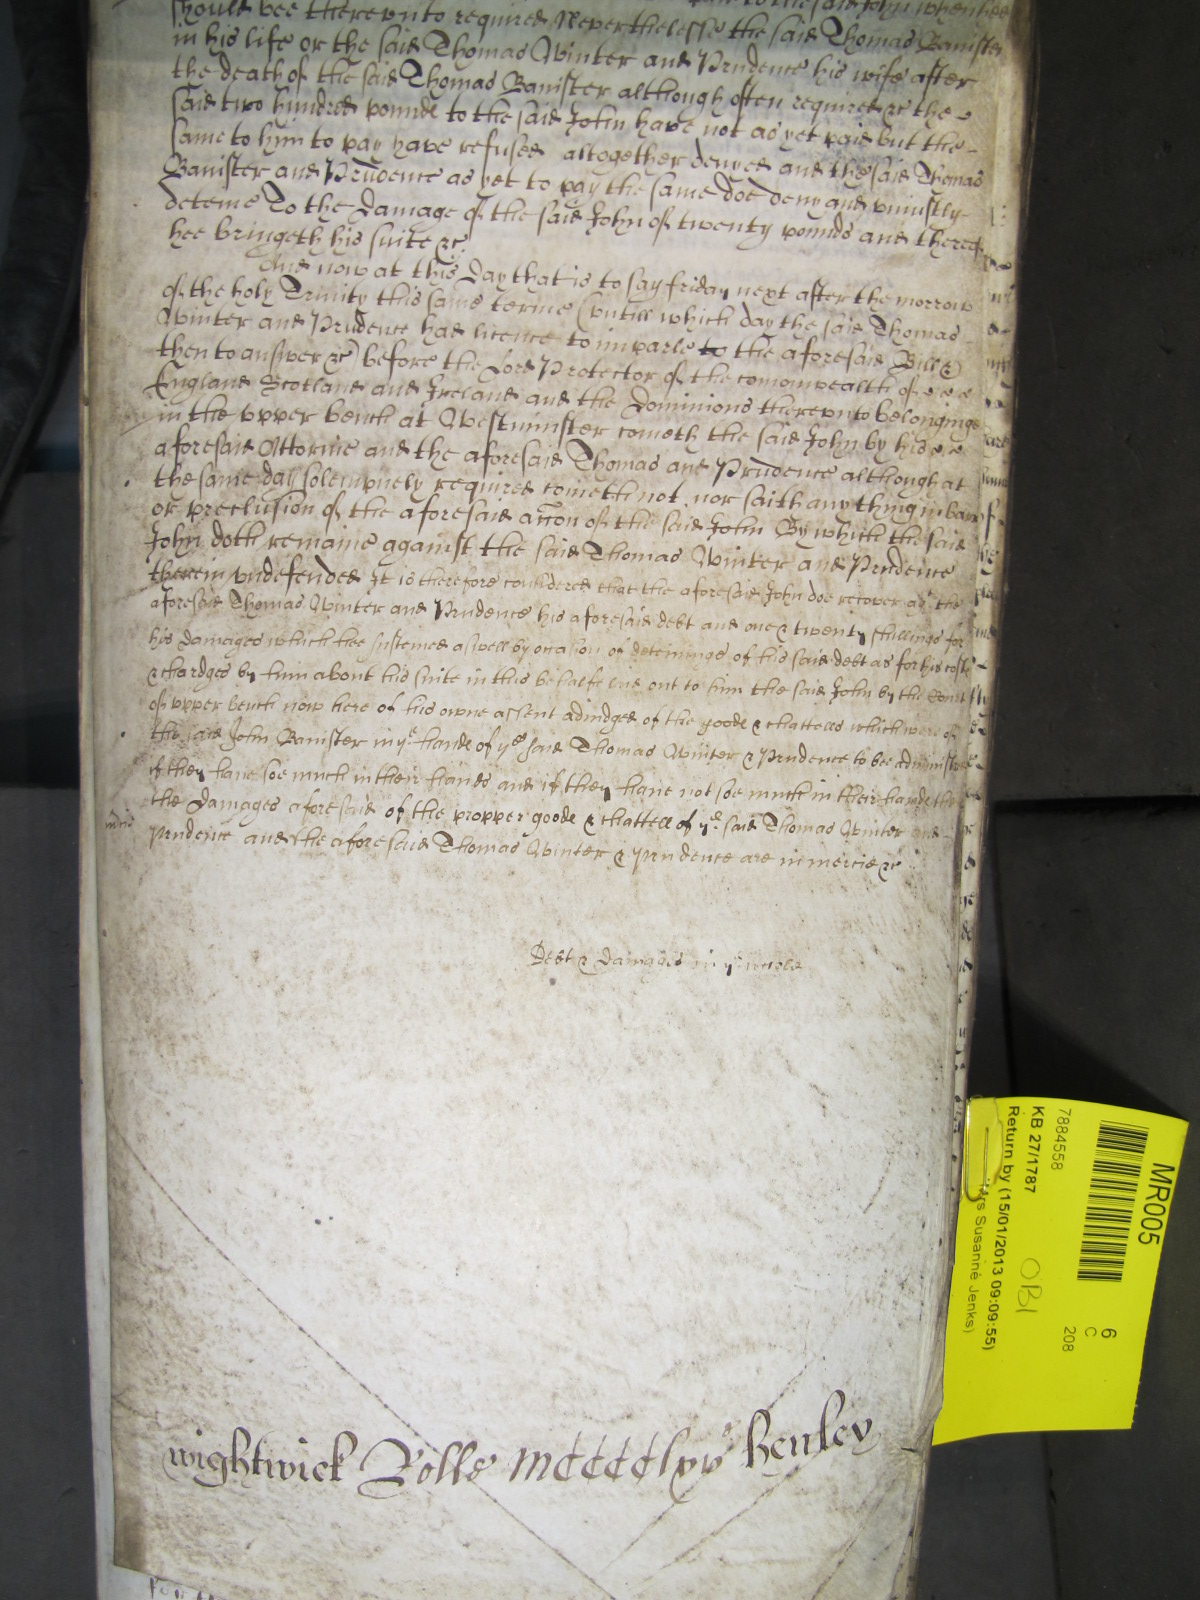 should bee thereunto required Neverthelesse the said Thomas Banister
in his life or the said Thomas Winter and Prudence his wife after
the death of the said Thomas Banister although often required &c the
said two hundred pounde to the said John have not as yet paid but the
same to him to pay have refused altogether denyed and the said Thomas
Banister and Prudence as yet to pay the same doe deny and uniustly
deteine To the Damage of the said John of twenty pounds and thereof
hee bringeth his suite &c
And now at this Day that is to say friday next after the morrow
of the holy Trinity this same terme (untill which day the said Thomas
Winter and Prudence had licence to imparle to the aforesaid Bill &
then to answer &c) before the Lord Protector of the comonwealth of
England Scotland and Ireland and the Dominions thereunto belonginge
in the upper bench at Westminster cometh the said John by his
aforesaid Attornie and the aforesaid Thomas and Prudence although at
the same day solempnely required cometh not nor saith any thing in barr
or preclusion of the aforesaid accon of the said John By which the said
John doth remaine against the said Thomas Winter and Prudence
therein undefended It is therefore considered that the aforesaid John doe recover agt the
aforesaid Thomas Winter and Prudence his aforesaid debt and one & twenty shillings for
his damages which hee susteined aswell by occasion of deteininge of his said debt as for his costs
& chardges by him about his suite in this behalfe laid out to him the said John by the Court
of upper bench now here of his owne assent adiudged of the goode & chattells which were of
the said John Banister in ye hande of ye said Thomas Winter & Prudence to bee administred
if they have soe much in their hands and if they have not soe much in their hande then
the damages aforesaid of the propper goode & chattell of ye said Thomas Winter and
Prudence and the aforesaid Thomas Winter & Prudence are in mercie &c
mercie
Debt & damages in ye whole
Wightwick Rolle MCCCClxv Henley
MR005
7884558
KB 27/1787
Return by (15/01/2013 09:09:55)
Mrs Susanne Jenks)
OBI
6
C
208